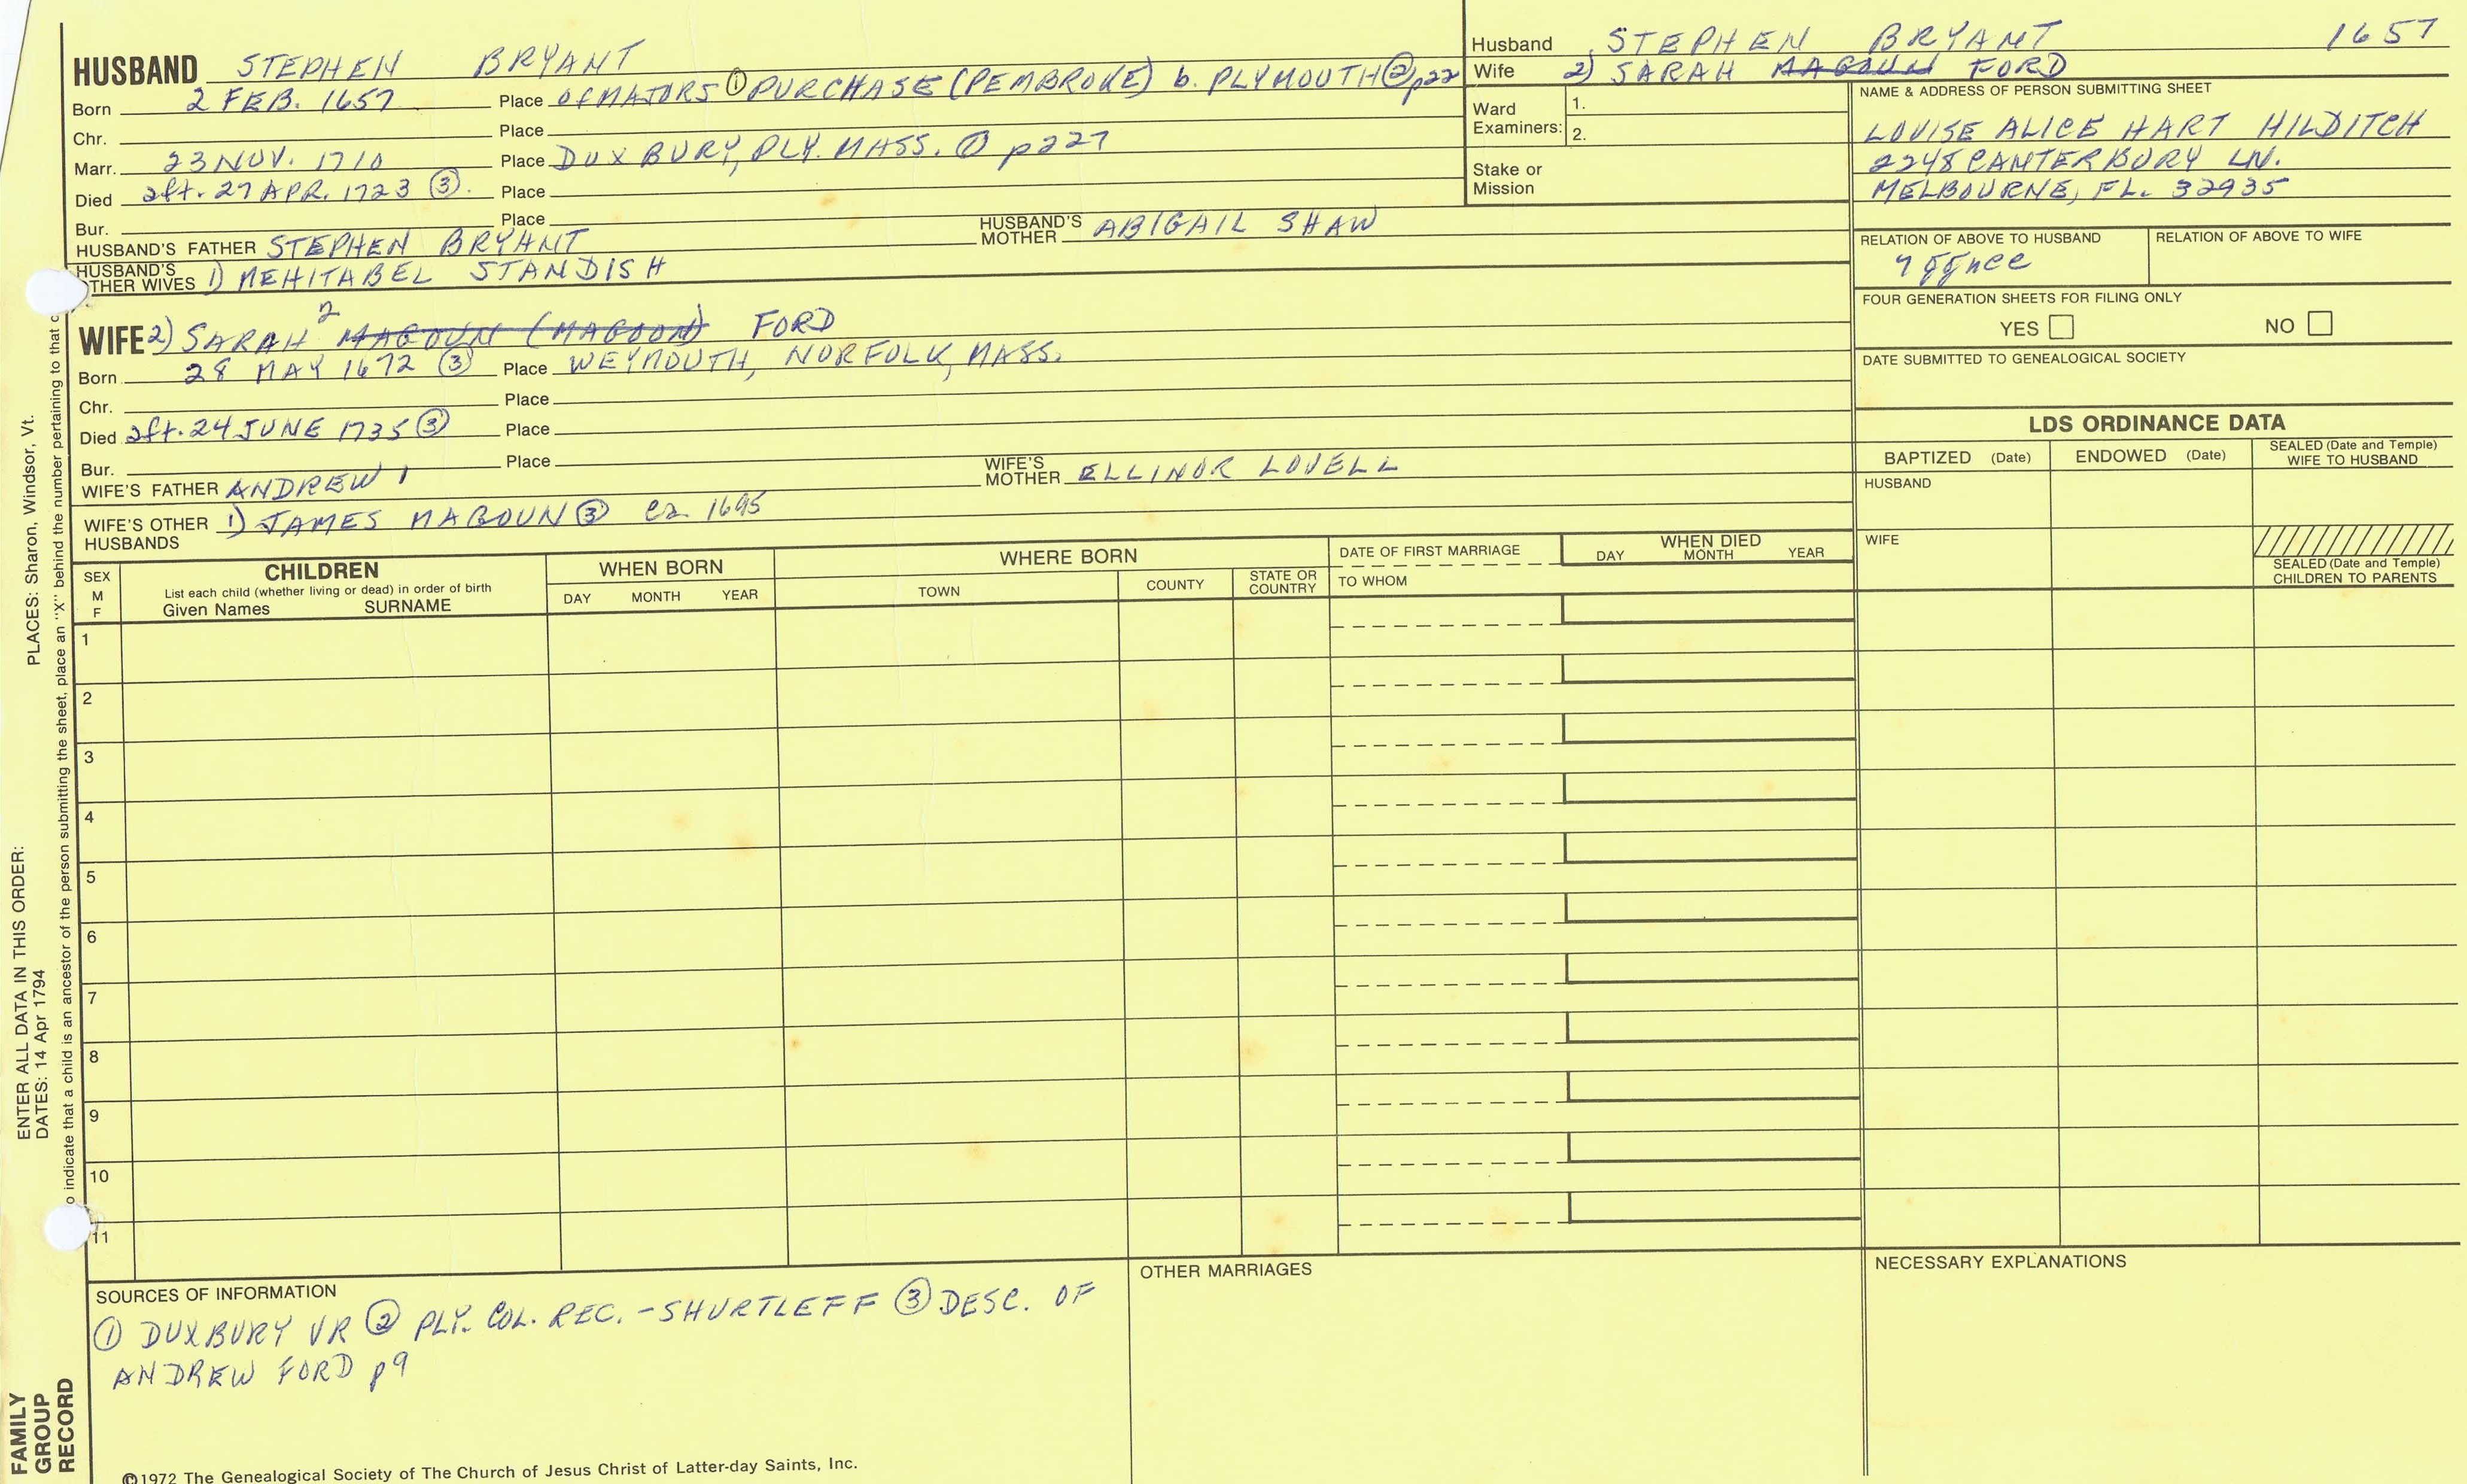 HUSBAND STEPHEN BRYANT
Born 2 FEB. 1657 Place OF MAJORS ① PURCHASE (PEMBROKE) b. PLYMOUTH ② p22
Chr. Place
Marr. 23 NOV. 1710 Place DUXBURY, PLY. MASS. ① p227
Died aft. 27 APR. 1723 ③. Place
Bur. Place
HUSBAND'S FATHER STEPHEN BRYANT HUSBAND'S MOTHER ABIGAIL SHAW
HUSBAND'S THER WIVES 1) MEHITABEL STANDISH
Husband STEPHEN BRYANT 1657
Wife 2) SARAH MAGOUN FORD
Ward Examiners: 1.
2.
Stake or Mission
NAME & ADDRESS OF PERSON SUBMITTING SHEET
LOUISE ALICE HART HILDITCH
2248 CANTERBURY LN.
MELBOURNE, FL. 32935
RELATION OF ABOVE TO HUSBAND RELATION OF ABOVE TO WIFE
7 ggnce
FOUR GENERATION SHEETS FOR FILING ONLY
YES NO
DATE SUBMITTED TO GENEALOGICAL SOCIETY
2
WIFE 2) SARAH MAGOUN (MAGOON) FORD
Born 28 MAY 1672 ③ Place WEYMOUTH, NORFOLK, MASS.
Chr. Place
Died aft. 24 JUNE 1735 ③ Place
Bur. Place
WIFE'S FATHER ANDREW 1 WIFE'S MOTHER ELLINOR LOVELL
WIFE'S OTHER HUSBANDS 1) JAMES MAGOUN ③ ca 1695
LDS ORDINANCE DATA
BAPTIZED (Date) ENDOWED (Date) SEALED (Date and Temple) WIFE TO HUSBAND
HUSBAND
WIFE
SEALED (Date and Temple) CHILDREN TO PARENTS
SEX M F
CHILDREN
List each child (whether living or dead) in order of birth
Given Names SURNAME
WHEN BORN
DAY MONTH YEAR
WHERE BORN
TOWN COUNTY STATE OR COUNTRY
DATE OF FIRST MARRIAGE
TO WHOM
WHEN DIED
DAY MONTH YEAR
1
2
3
4
5
6
7
8
9
10
11
SOURCES OF INFORMATION
① DUXBURY VR ② PLY. COL. REC. - SHURTLEFF ③ DESC. OF
ANDREW FORD p9
OTHER MARRIAGES
NECESSARY EXPLANATIONS
©1972 The Genealogical Society of The Church of Jesus Christ of Latter-day Saints, Inc.
FAMILY GROUP RECORD
ENTER ALL DATA IN THIS ORDER:
DATES: 14 Apr 1794
PLACES: Sharon, Windsor, Vt.
o indicate that a child is an ancestor of the person submitting the sheet, place an "X" behind the number pertaining to that c